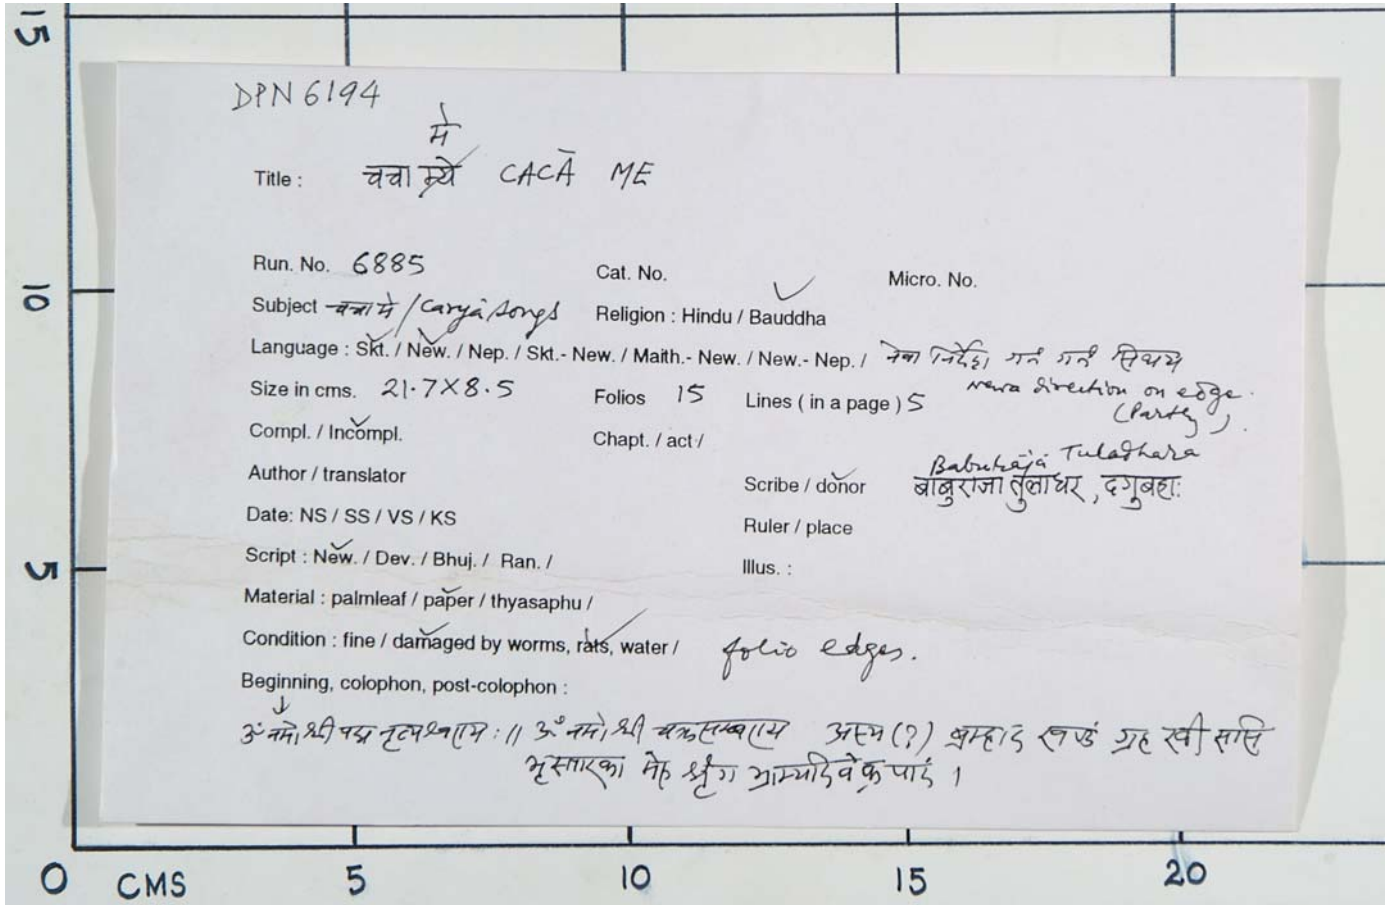 15
DPN 6194
मे
Title : चचा म्ये CACĀ ME
Run. No. 6885 Cat. No. Micro. No.
10
Subject चचा मे / Caryā songs Religion : Hindu / Bauddha
Language : Skt. / New. / Nep. / Skt.- New. / Maith.- New. / New.- Nep. / नेवा निर्देश
Newa direction on edge.
Size in cms. 21.7X8.5 Folios 15 Lines ( in a page ) 5 (Partly).
Compl. / Incompl. Chapt. / act /
Tuladhara
Author / translator Scribe / donor बाबुराजा तुलाधर, दगुबहाः
Date: NS / SS / VS / KS Ruler / place
5
Script : New. / Dev. / Bhuj. / Ran. / Illus. :
Material : palmleaf / paper / thyasaphu /
Condition : fine / damaged by worms, rats, water / folio edges.
Beginning, colophon, post-colophon :
ॐ नमो श्री पद्म नृत्यश्वराय : || ॐ नमो श्री चक्रसम्बराय (?) खण्डं ग्रह
0 CMS 5 10 15 20